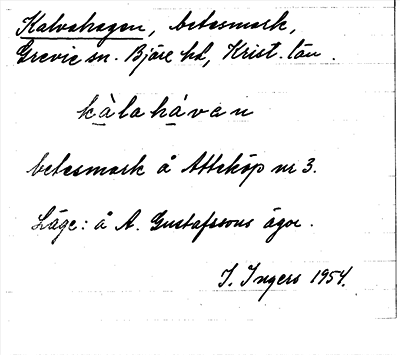 Kalvahagen, betesmark,
Grevie sn. Bjäre hd, Krist. län.
kàlahávan
betesmark å Atteköp nr 3.
Läge: å A. Gustafssons ägor.
I. Ingers 1954.